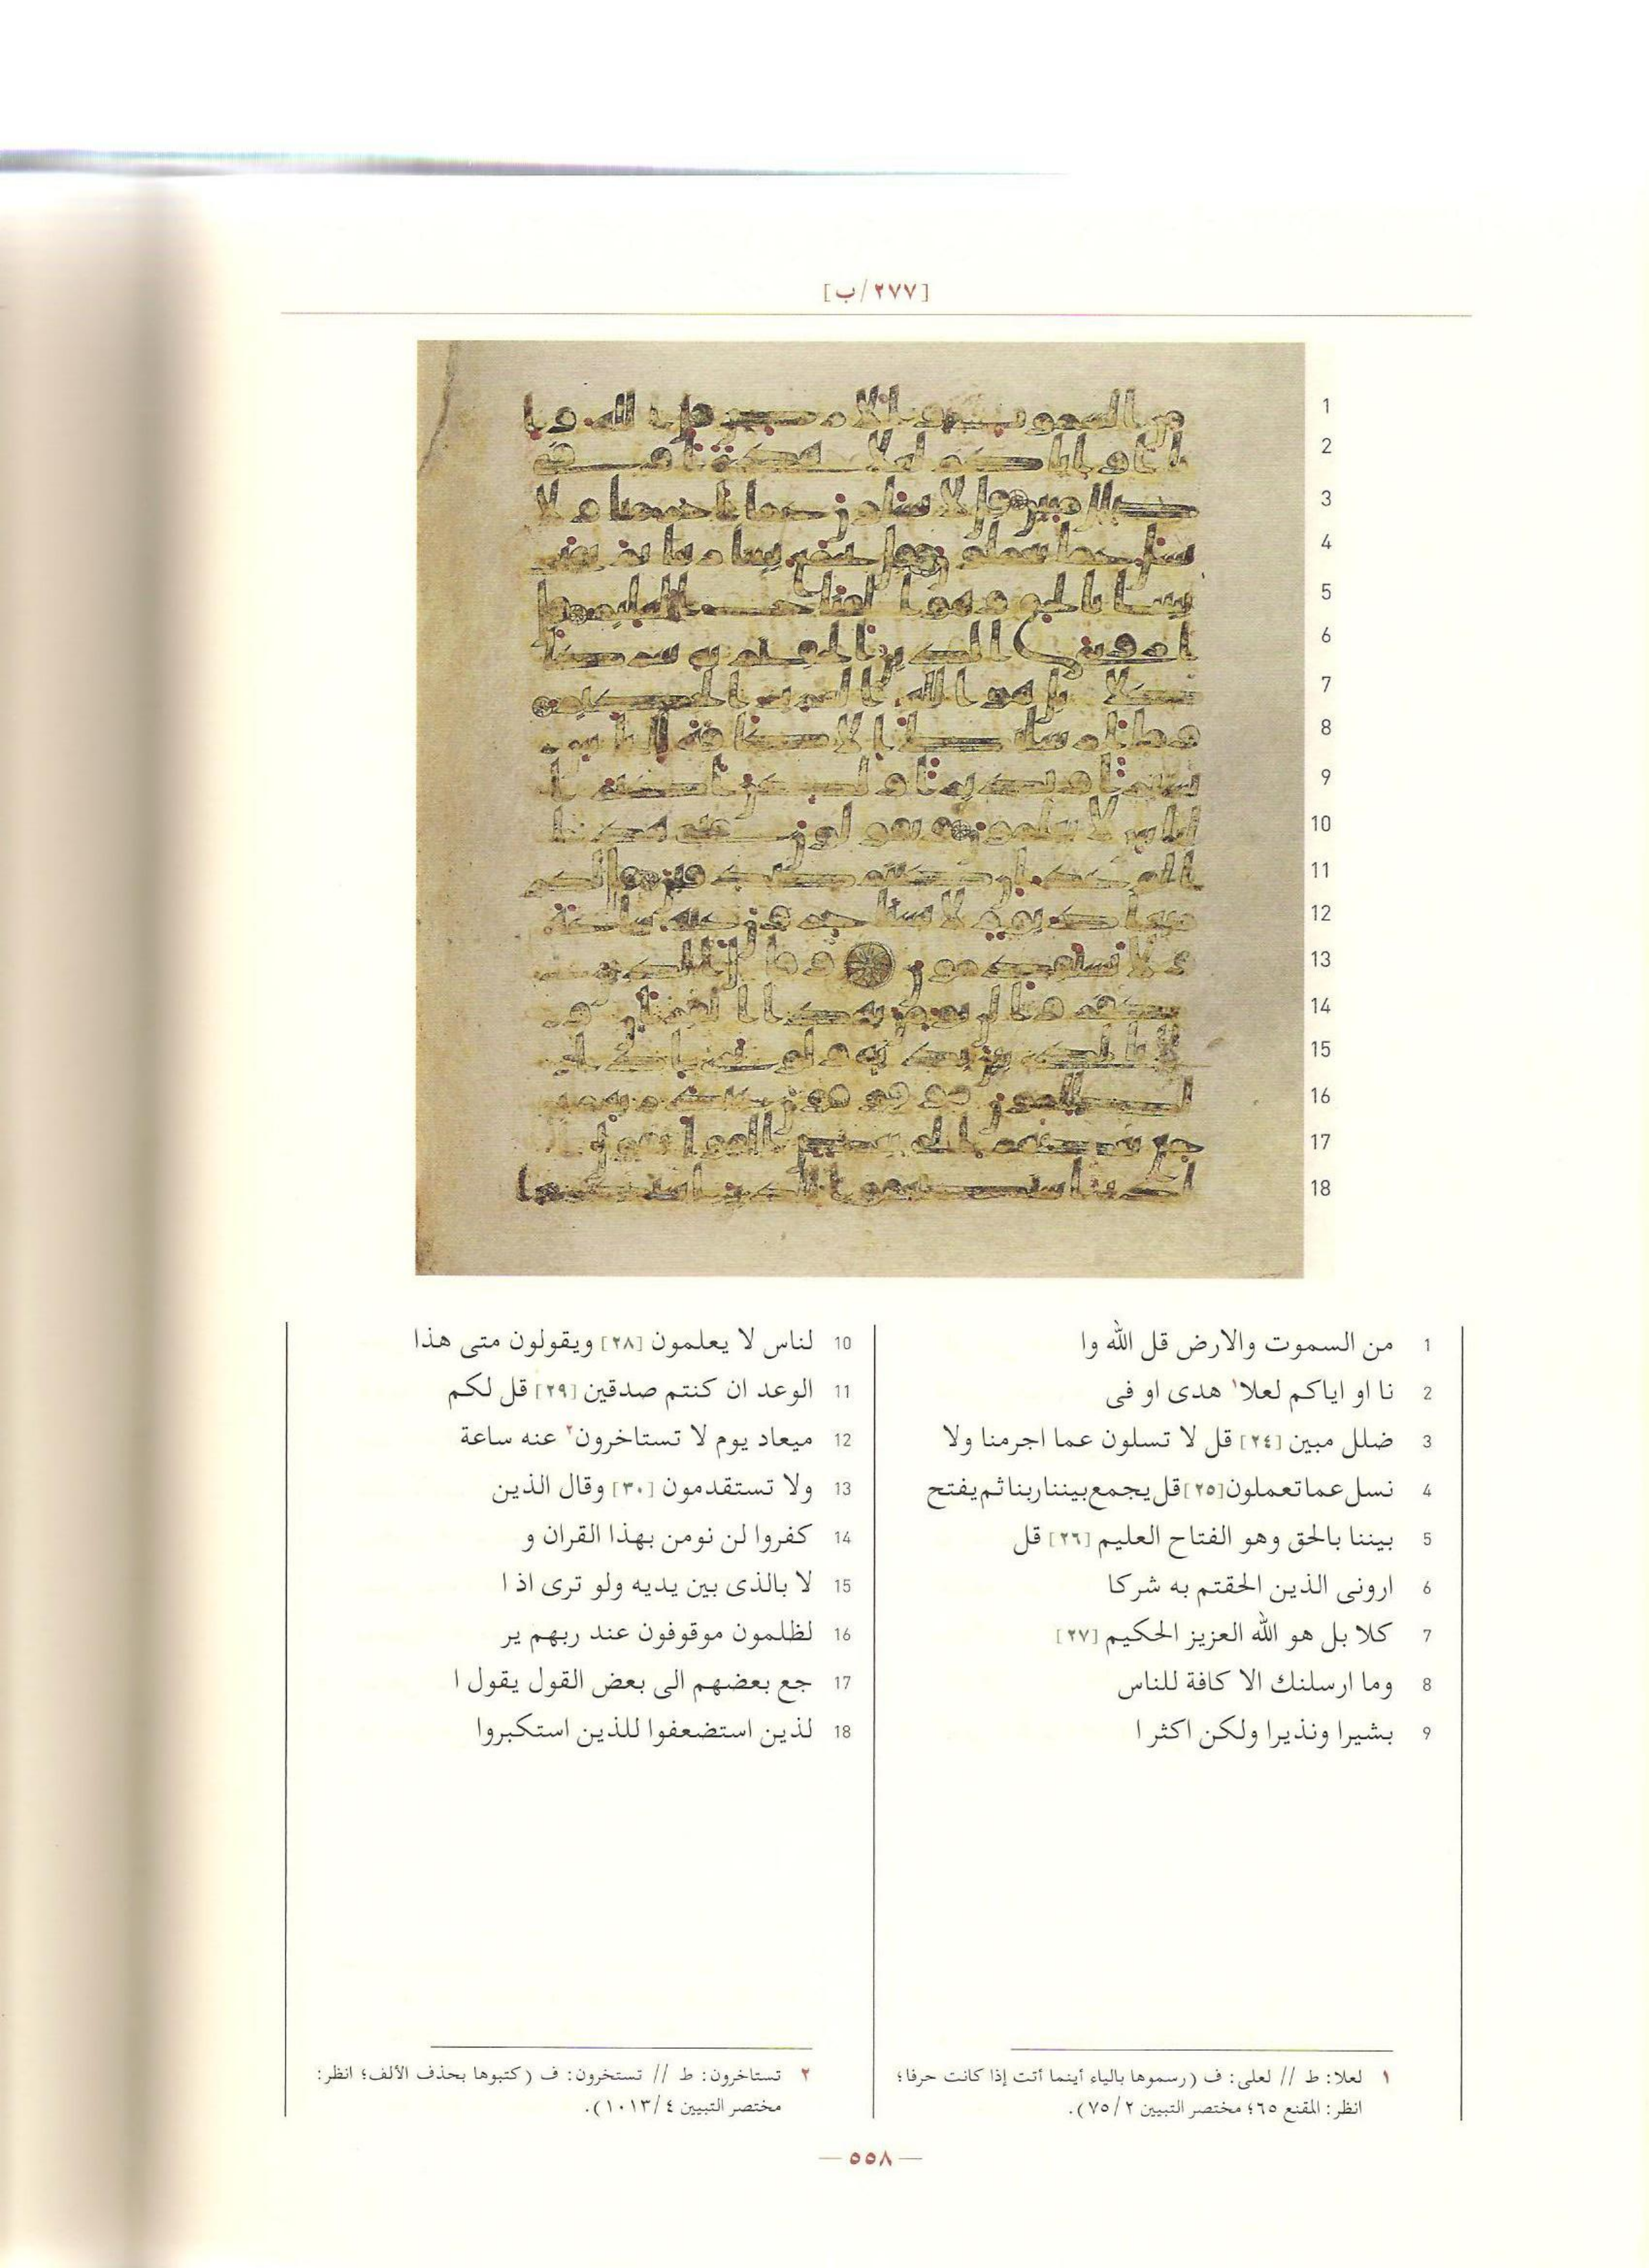 [٢٧٧/ب]
1 من السموت والارض قل الله وا
2 نا او اياكم لعلا١ هدى او فى
3 ضلل مبين [٢٤] قل لا تسلون عما اجرمنا ولا
4 نسل عما تعملون [٢٥] قل يجمع بيننا ربنا ثم يفتح
5 بيننا بالحق وهو الفتاح العليم [٢٦] قل
6 ارونى الذين الحقتم به شركا
7 كلا بل هو الله العزيز الحكيم [٢٧]
8 وما ارسلنك الا كافة للناس
9 بشيرا ونذيرا ولكن اكثر ا
10 لناس لا يعلمون [٢٨] ويقولون متى هذا
11 الوعد ان كنتم صدقين [٢٩] قل لكم
12 ميعاد يوم لا تستاخرون٢ عنه ساعة
13 ولا تستقدمون [٣٠] وقال الذين
14 كفروا لن نومن بهذا القران و
15 لا بالذى بين يديه ولو ترى اذ ا
16 لظلمون موقوفون عند ربهم ير
17 جع بعضهم الى بعض القول يقول ا
18 لذين استضعفوا للذين استكبروا
١ لعلا: ط // لعلى: ف (رسموها بالياء أينما أتت إذا كانت حرفا؛
انظر: المقنع ٦٥؛ مختصر التبيين ٧٥/٢).
٢ تستاخرون: ط // تستخرون: ف (كتبوها بحذف الألف؛ انظر:
مختصر التبيين ١٠١٣/٤).
— ٥٥٨ —